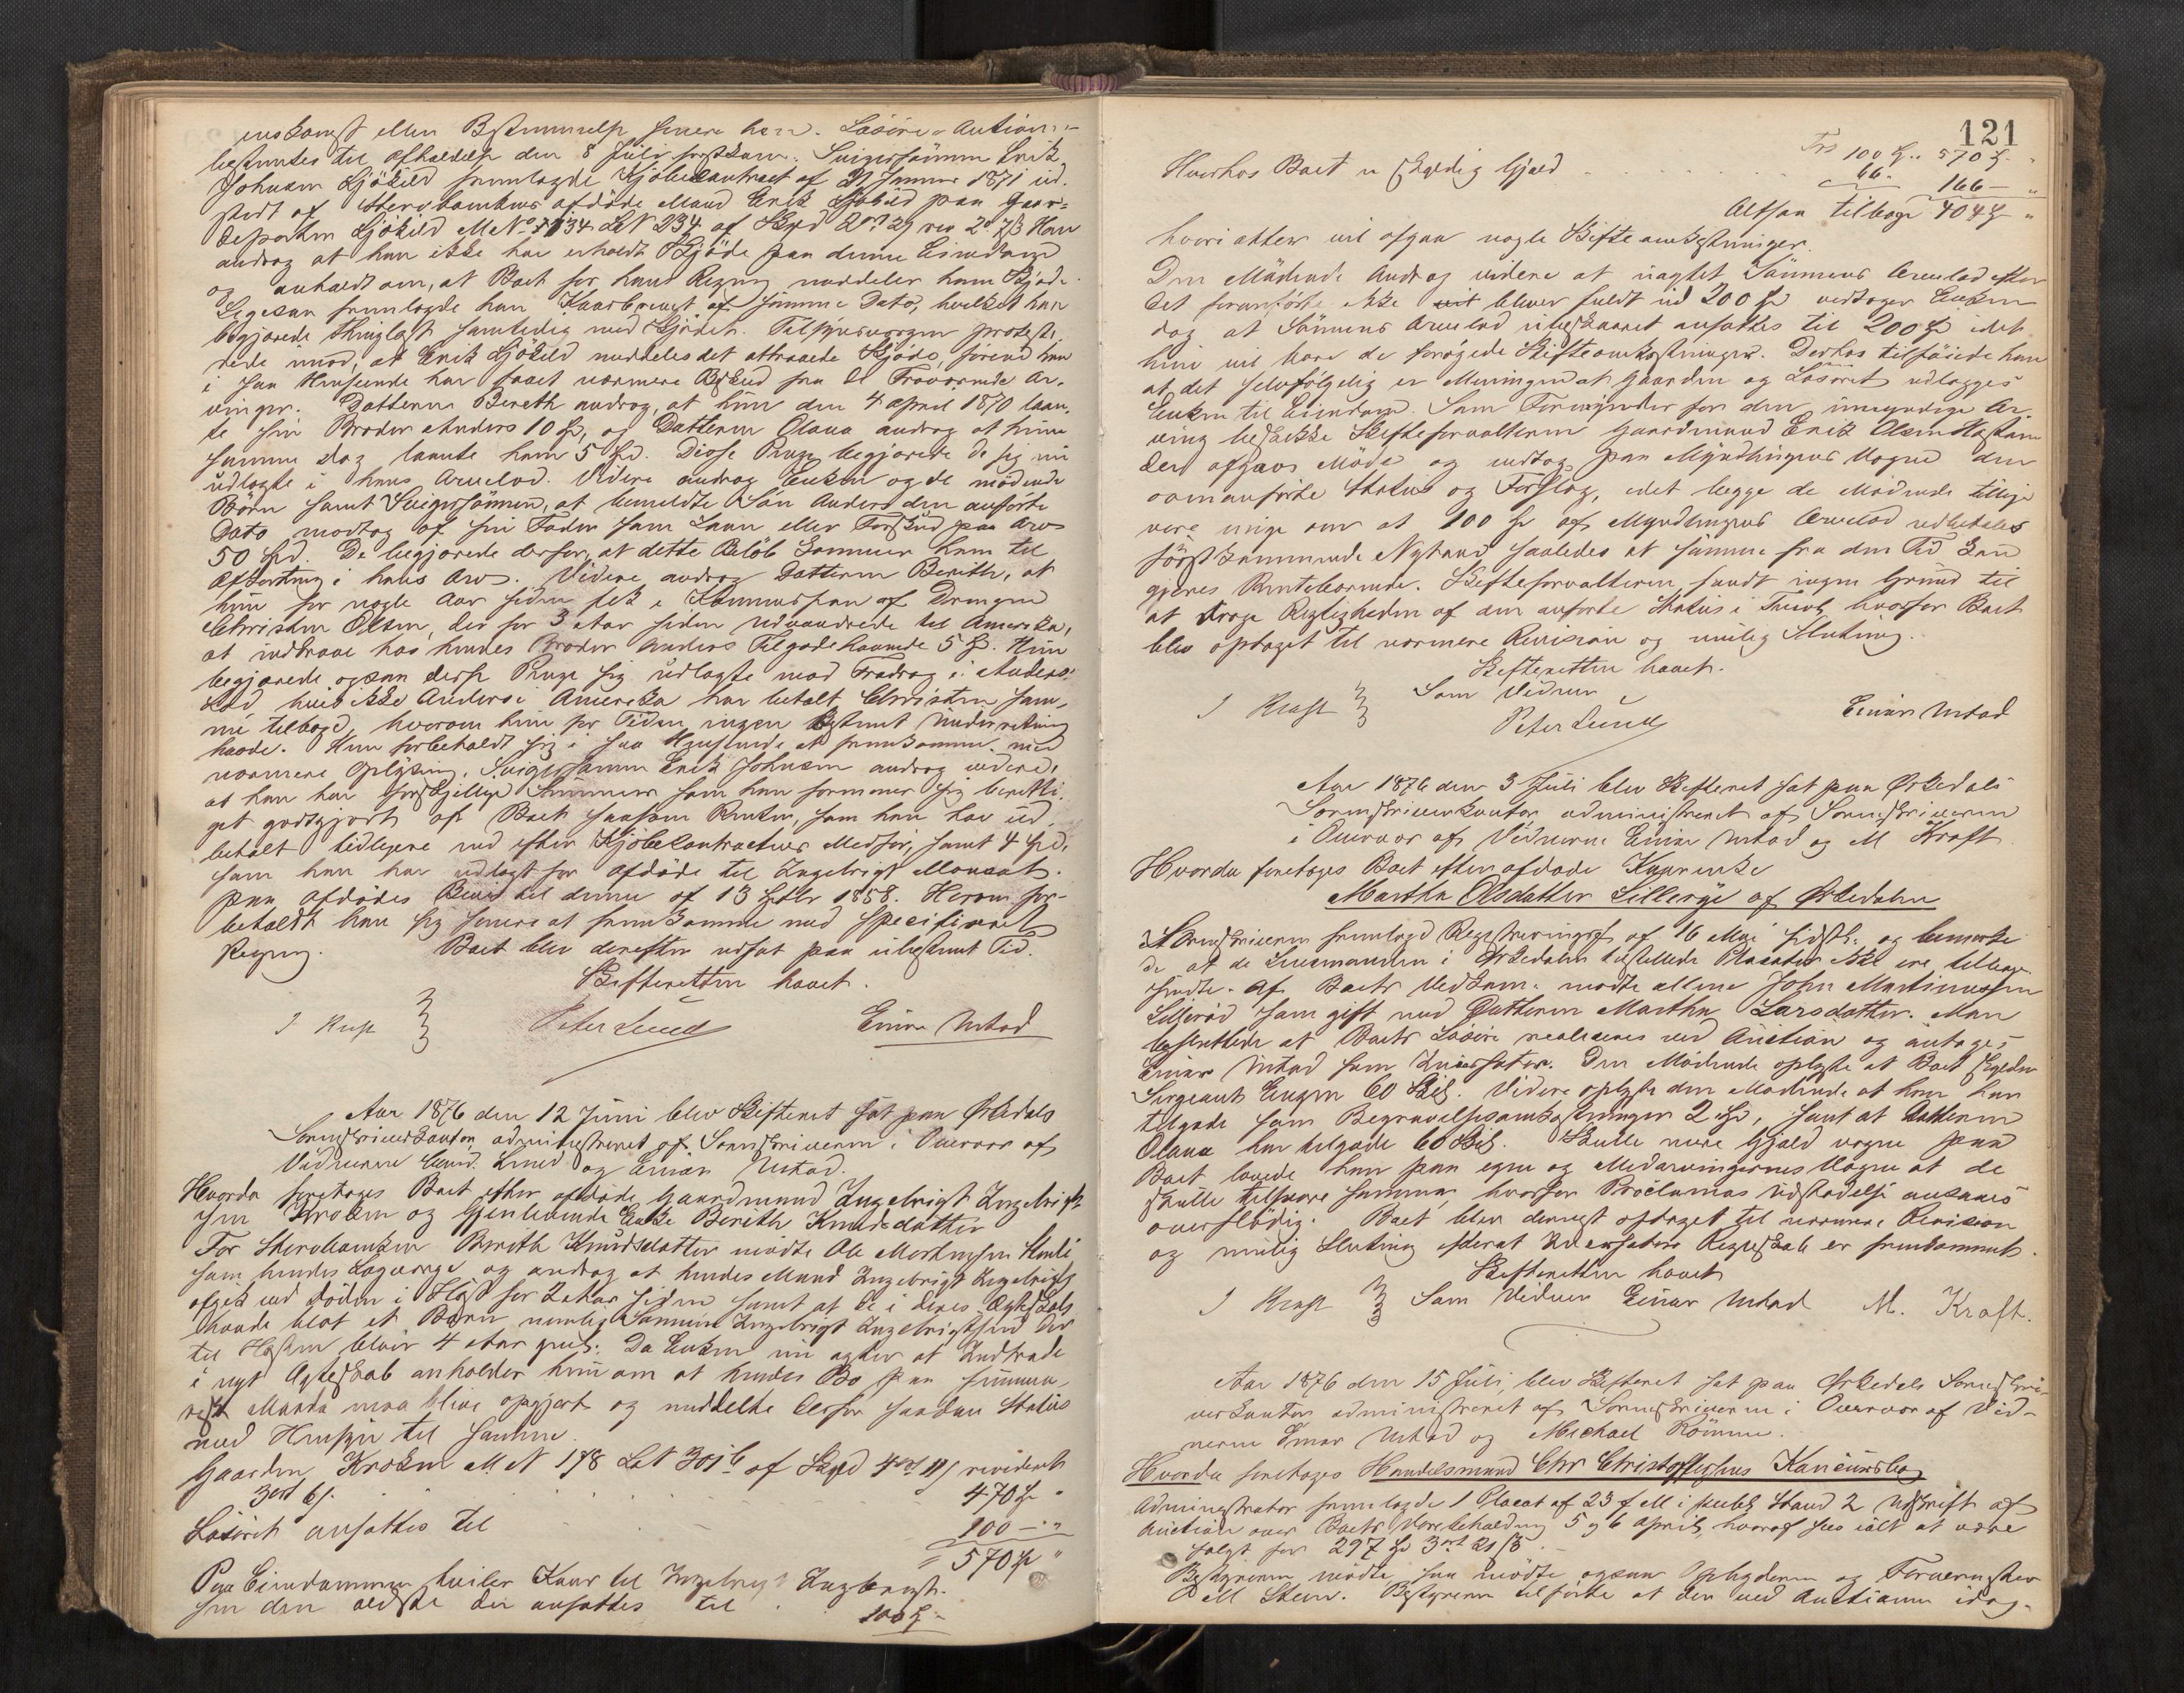 enskomst eller Bestemmelse senere hen. Løsøre-Auction
bestemtes til Afholdelse den 8 Juli førstkom. Svigersønnen Erik
Johnsen Sjøkild fremlagde Kjøbekontract af 21 Januar 1871 ud-
stedt af Stervboenkens afdøde Mand Erik Sjøkild paa Gaar-
departen Sjøkild M No 134 L N 234 af Skyld 2 ort 29 rev 2 d 7 β Han
androg at han ikke har erholdt Skjøde paa denne Eiendom
og anholdt om, at Boet for hans Regning meddeler ham Skjøde.
Ligesaa fremlagde han Kaarbrevet af samme Dato, hvilket han
begjærede thinglæst samtidig med Skjødet. Tilsynsværgen proteste-
rede imod, at Erik Sjøkild meddeles det attraaede Skjøde, førend han
i saa Henseende har faaet nærmere Besked fra de Fraværende Ar-
vinger. Datteren Bereth androg, at hun den 4 April 1870 laan-
te sin Broder Anders 10 Spd, og Datteren Olava androg at hun
samme Dag laante ham 5 Spd. Disse Penge begjærede de sig nu
udlagte i hans Arvelod. Videre androg Enken og de mødende
Børn samt Svigersønnen, at bemeldte Søn Anders den anførte
Dato modtog af sin Fader som Laan eller Forskud paa Arv
50 Spd. De begjærede derfor, at dette Beløb kommer ham til
Afkortning i hans Arv. Videre androg Datteren Berith, at
hun for nogle Aar siden fik i Kommission af Drengen
Christen Olsen, der for 3 Aar siden udvandrede til Amerika,
at indkræve hos hendes Broder Anders Tilgodehavende 5 Spd. Hun
begjærede ogsaa disse Penge sig udlagte mod Fradrag i Anders
Lod hvis ikke Anders i Amerika har betalt Christen sam-
me tilbage, hvorom hun for Tiden ingen bestemt Underretning
havde. Hun forbeholdt sig i saa Henseende at fremkomme med
nærmere Oplysning. Svigersønnen Erik Johnsen androg videre,
at han har forskjellige Summer som han formener sig beretti-
get godtgjort af Boet saasom Renter, som han har ud-
betalt tidligere end efter Kjøbekontractens Medfør, samt 4 Spd.
som han har udlagt for afdøde til Ingebrigt
paa afdødes Bevis til denne af 13 1858. Herom for-
beholdt han sig senere at fremkomme med specificeret
Regning. Boet blev derefter udsat paa ubestemt Tid.
Skifteretten hævet.
Peter Lund Einar
Aar 1876 den 12 Juni blev Skifteret sat paa Ørkedals
Sorenskriverkontor administreret af Sorenskriveren i Overvær af
Vidnerne Lund og Einar
Hvorda foretoges Boet efter afdøde Gaardmand Ingebrigt Ingebrigt-
sen Kroken og Gjenlevende Enke Berith Knudsdatter
For Stervboenken Berith Knudsdatter mødte Ole Mortensen
som hendes Lagværge og androg at hendes Mand Ingebrigt Ingebrigts
afgik ved Døden i Høst for 2 Aar siden samt at de i deres Ægteskab
havde blot et Barn nemlig Sønnen Ingebrigt Ingebrigtsen der
til Høsten bliver 4 Aar gml. Da Enken nu agter at Indtræde
i nyt Ægteskab anholder hun om at hendes Bo paa summa-
risk Maade maa blive opgjort og meddelte derfor saadan Status
med Hensyn til samme.
Gaarden Kroken M N 178 L N 301 b af Skyld 4 ort 11 s revideret
3 ort 6 s . . . 470 Spd "
Løsøret ansattes til . . . 100 — "
570 Spd "
Paa Eiendommen hviler Kaar til Ingebrigt Ingebrigt-
sen den ældste der ansattes til . 100 Spd
121
Trs 100 Spd " 570 Spd "
Hvorhos Boet er skyldig Gjæld . . . 66 - 166 — "
Altsaa tilbage 404 Spd "
hvori atter vil afgaa nogle Skifteomkostninger.
Den Mødende androg videre at uagtet Sønnens Arvelod efter
det foranførte ikke vil bliver fuldt ud 200 Spd vedtager Enken
dog at Sønnens Arvelod ubeskaaret ansættes til 200 Spd idet
hun vil bære de forøgede Skifteomkostninger. Derhos tilføiede han
at det selvfølgelig er Meningen at Gaarden og Løsøret udlægges
Enken til Eiendom. Som Formynder for den umyndige Ar-
ving beskikke Skifteforvalteren Gaardmand Erik Olsen
der afgav Møde og vedtog paa Myndlingens Vegne den
ovenanførte Status og Forslag, idet begge de Mødende tillige
vare enige om at 100 Spd af Myndlingens Arvelod udbetales
førstkommende Nytaar saaledes at samme fra den Tid kan
gjøres Rentebærende. Skifteforvalteren fandt ingen Grund til
at drage Rigtigheden af den anførte Status i Tvivl, hvorfor Boet
blev optaget til nærmere Revision og mulig Slutning.
Skifteretten hævet.
Som Vidner
Peter Lund Einar
Aar 1876 den 3 Juli blev Skifteret sat paa Ørkedals
Sorenskriverkontor administreret af Sorenskriveren
i Overvær af Vidnerne Einar og M Kraft
Hvorda foretoges Boet efter afdøde Kaarenke
Martha Olsdatter Lillerye af Ørkedalen
Sorenskriveren fremlagd Registreringsf. af 16 Mai sidstl. og bemærke-
de at de Lensmanden i Ørkedalen tilstillede Placater ikke ere tilbage-
sendte. Af Boets Vedkom. mødte alene John Martinussen
Lillerød som gift med Datteren Martha Larsdatter. Man
besluttede at Boets Løsøre realiseres ved Auction og antages
Einar som Incassator. Den Mødende oplyste at Boet skylder
Sergeant Engen 60 Skil. Videre oplyste den Mødende at han har
tilgode som Begravelsesomkostninger 2 Spd, samt at Datteren
Olava har tilgode 60 Skil. Skulle mere Gjæld vogne paa
Boet lovede han paa egne og Medarvingernes Vegne at de
skulle tilsvare samme, hvorfor Proclamas Udstædelse ansaaes
overflødig. Boet blev dernæst optaget til nærmere Revision
og mulig Slutning efterat Incassators Regnskab er fremkommet.
Skifteretten hævet
Som Vidner Einar M. Kraft.
Aar 1876 den 15 Juli, blev Skifteret sat paa Ørkedals Sorenskri-
verkontor administreret af Sorenskriveren i Overvær af Vid-
nerne Einar og Michael Rømme.
Hvorda foretoges Handelsmand Chr Christoffersens Konkursbo
Administrator fremlagde 1 Placat af 23 f M i publ Stand 2 Udskrift af
Auction over Boets Varebeholdning 5 og 6 April, hvoraf sees ialt at være
solgt for 297 Spd 3 ort 21 β.
Bestyreren mødte, saa mødte ogsaa Opbyderen og
M Steen. Bestyreren tilførte at den ved Auctionen idag